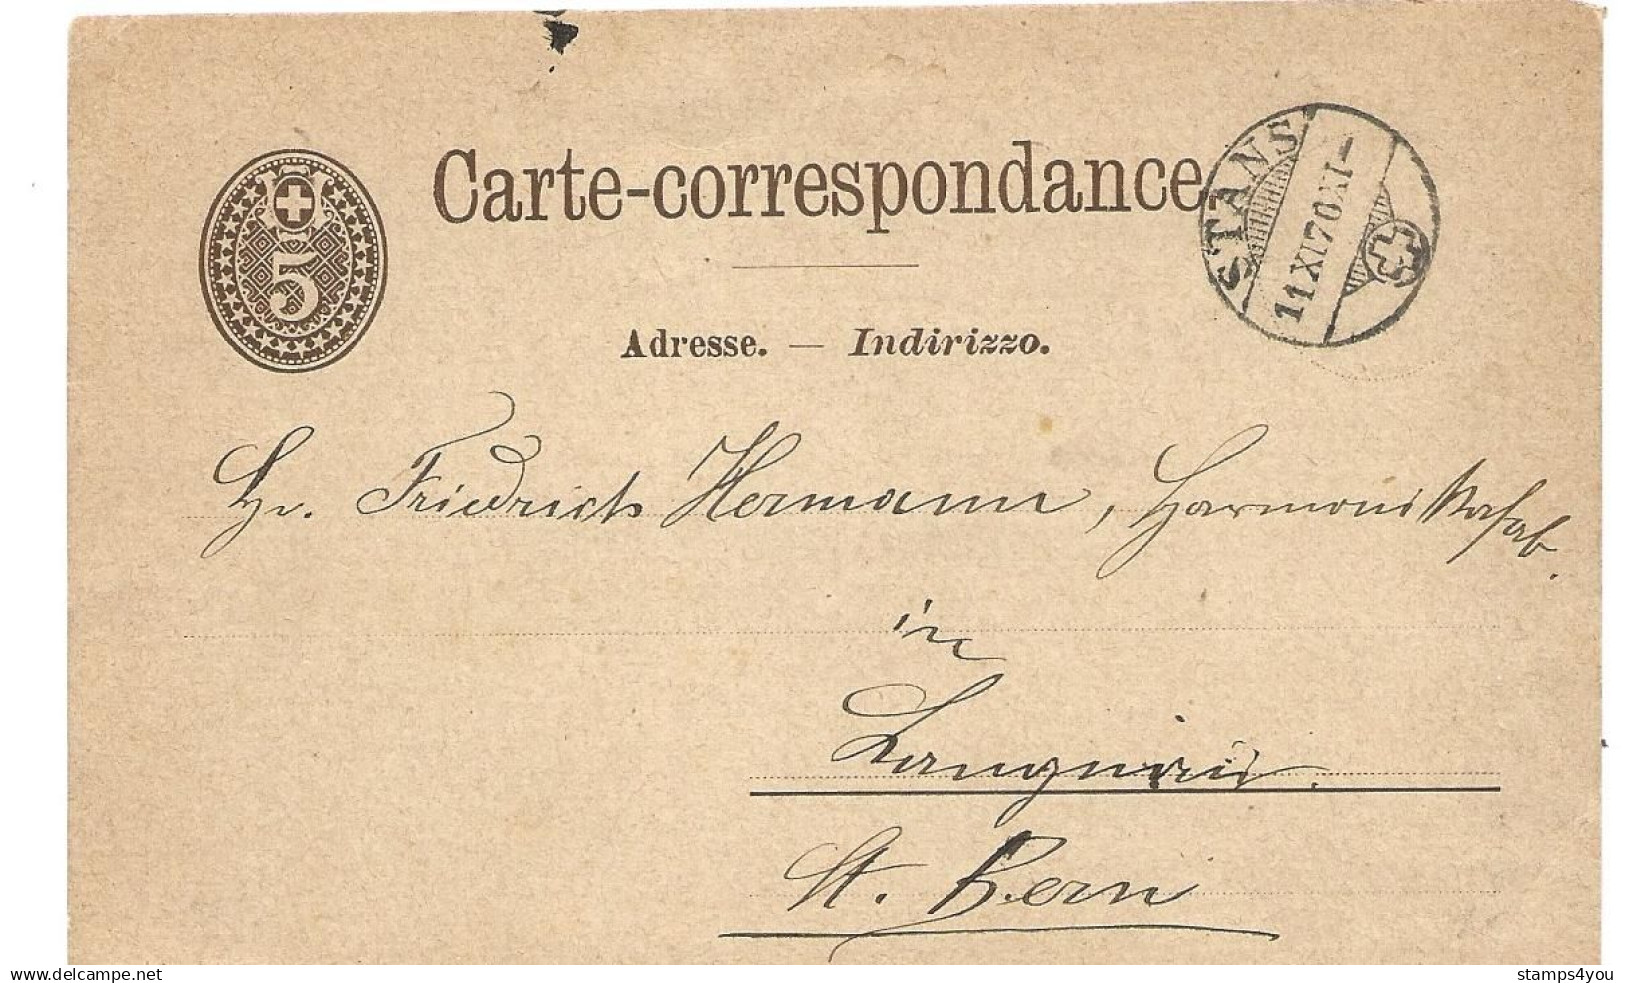 Carte-correspondance.
5
STANS
11 XI 70 XI–
Adresse. — Indirizzo.
Hr. Friedrich Hermann, Harmonikafab.
in
St. Bern
www.delcampe.net
stamps4you